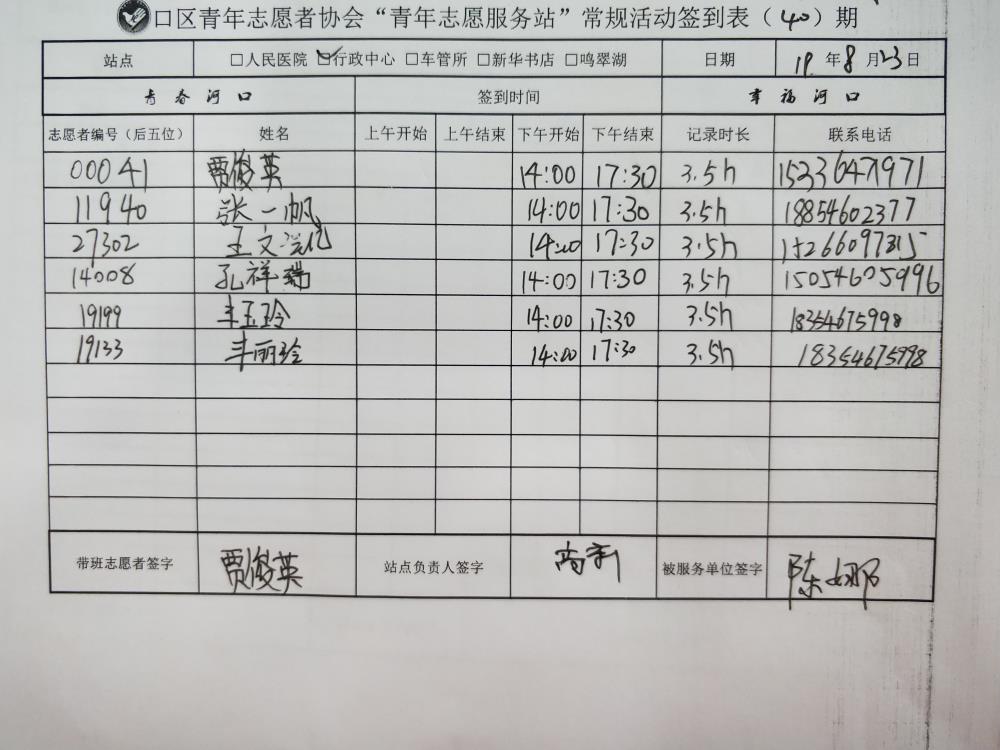 口区青年志愿者协会“青年志愿服务站”常规活动签到表（40）期
站点 □人民医院 ☑行政中心 □车管所 □新华书店 □鸣翠湖 日期 19 年 8 月 23 日
青春河口 签到时间 幸福河口
志愿者编号（后五位） 姓名 上午开始 上午结束 下午开始 下午结束 记录时长 联系电话
00041 贾俊英 14:00 17:30 3.5h 15336471971
11940 张一帆 14:00 17:30 3.5h 18854602377
27302 王文 14:00 17:30 3.5h
14008 孔祥瑞 14:00 17:30 3.5h 15054605996
19199 丰玉玲 14:00 17:30 3.5h 18354675998
19133 丰丽玲 14:00 17:30 3.5h 18354675998
带班志愿者签字 贾俊英 站点负责人签字 高新 被服务单位签字 陈娜